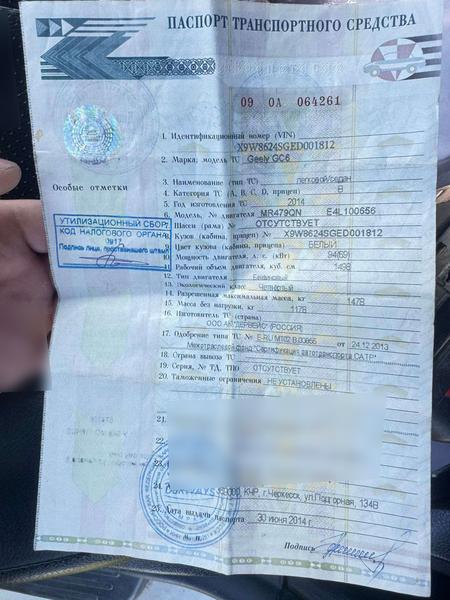 ПАСПОРТ ТРАНСПОРТНОГО СРЕДСТВА
09 ОА 064261
1. Идентификационный номер (VIN)
X9W8624SGED001812
2. Марка, модель ТС Geely GC6
3. Наименование (тип ТС) легковой/седан
4. Категория ТС (A, B, C, D, прицеп) B
5. Год изготовления ТС 2014
6. Модель, № двигателя MR479QN E4L100656
7. Шасси (рама) № ОТСУТСТВУЕТ
8. Кузов (кабина, прицеп) № X9W8624SGED001812
9. Цвет кузова (кабины, прицепа) БЕЛЫЙ
10. Мощность двигателя, л. с. (кВт) 94(69)
11. Рабочий объем двигателя, куб. см 1498
12. Тип двигателя Бензиновый
13. Экологический класс Четвертый
14. Разрешенная максимальная масса, кг 1478
15. Масса без нагрузки, кг 1178
16. Изготовитель ТС (страна)
ООО АК "ДЕРВЕЙС" (РОССИЯ)
17. Одобрение типа ТС № E-RU.MT02.B.00855 от 24.12.2013
Межотраслевой фонд "Сертификация автотранспорта САТР"
18. Страна вывоза ТС
19. Серия, № ТД, ТПО ОТСУТСТВУЕТ
20. Таможенные ограничения НЕ УСТАНОВЛЕНЫ
21.
22.
23.
КЧР, г.Черкесск, ул.Подгорная, 134В
25. Дата выдачи паспорта 30 июня 2014 г.
М. П.
Подпись
Особые отметки
УТИЛИЗАЦИОННЫЙ СБОР
КОД НАЛОГОВОГО ОРГАНА
0917
Подпись лица, проставившего штамп